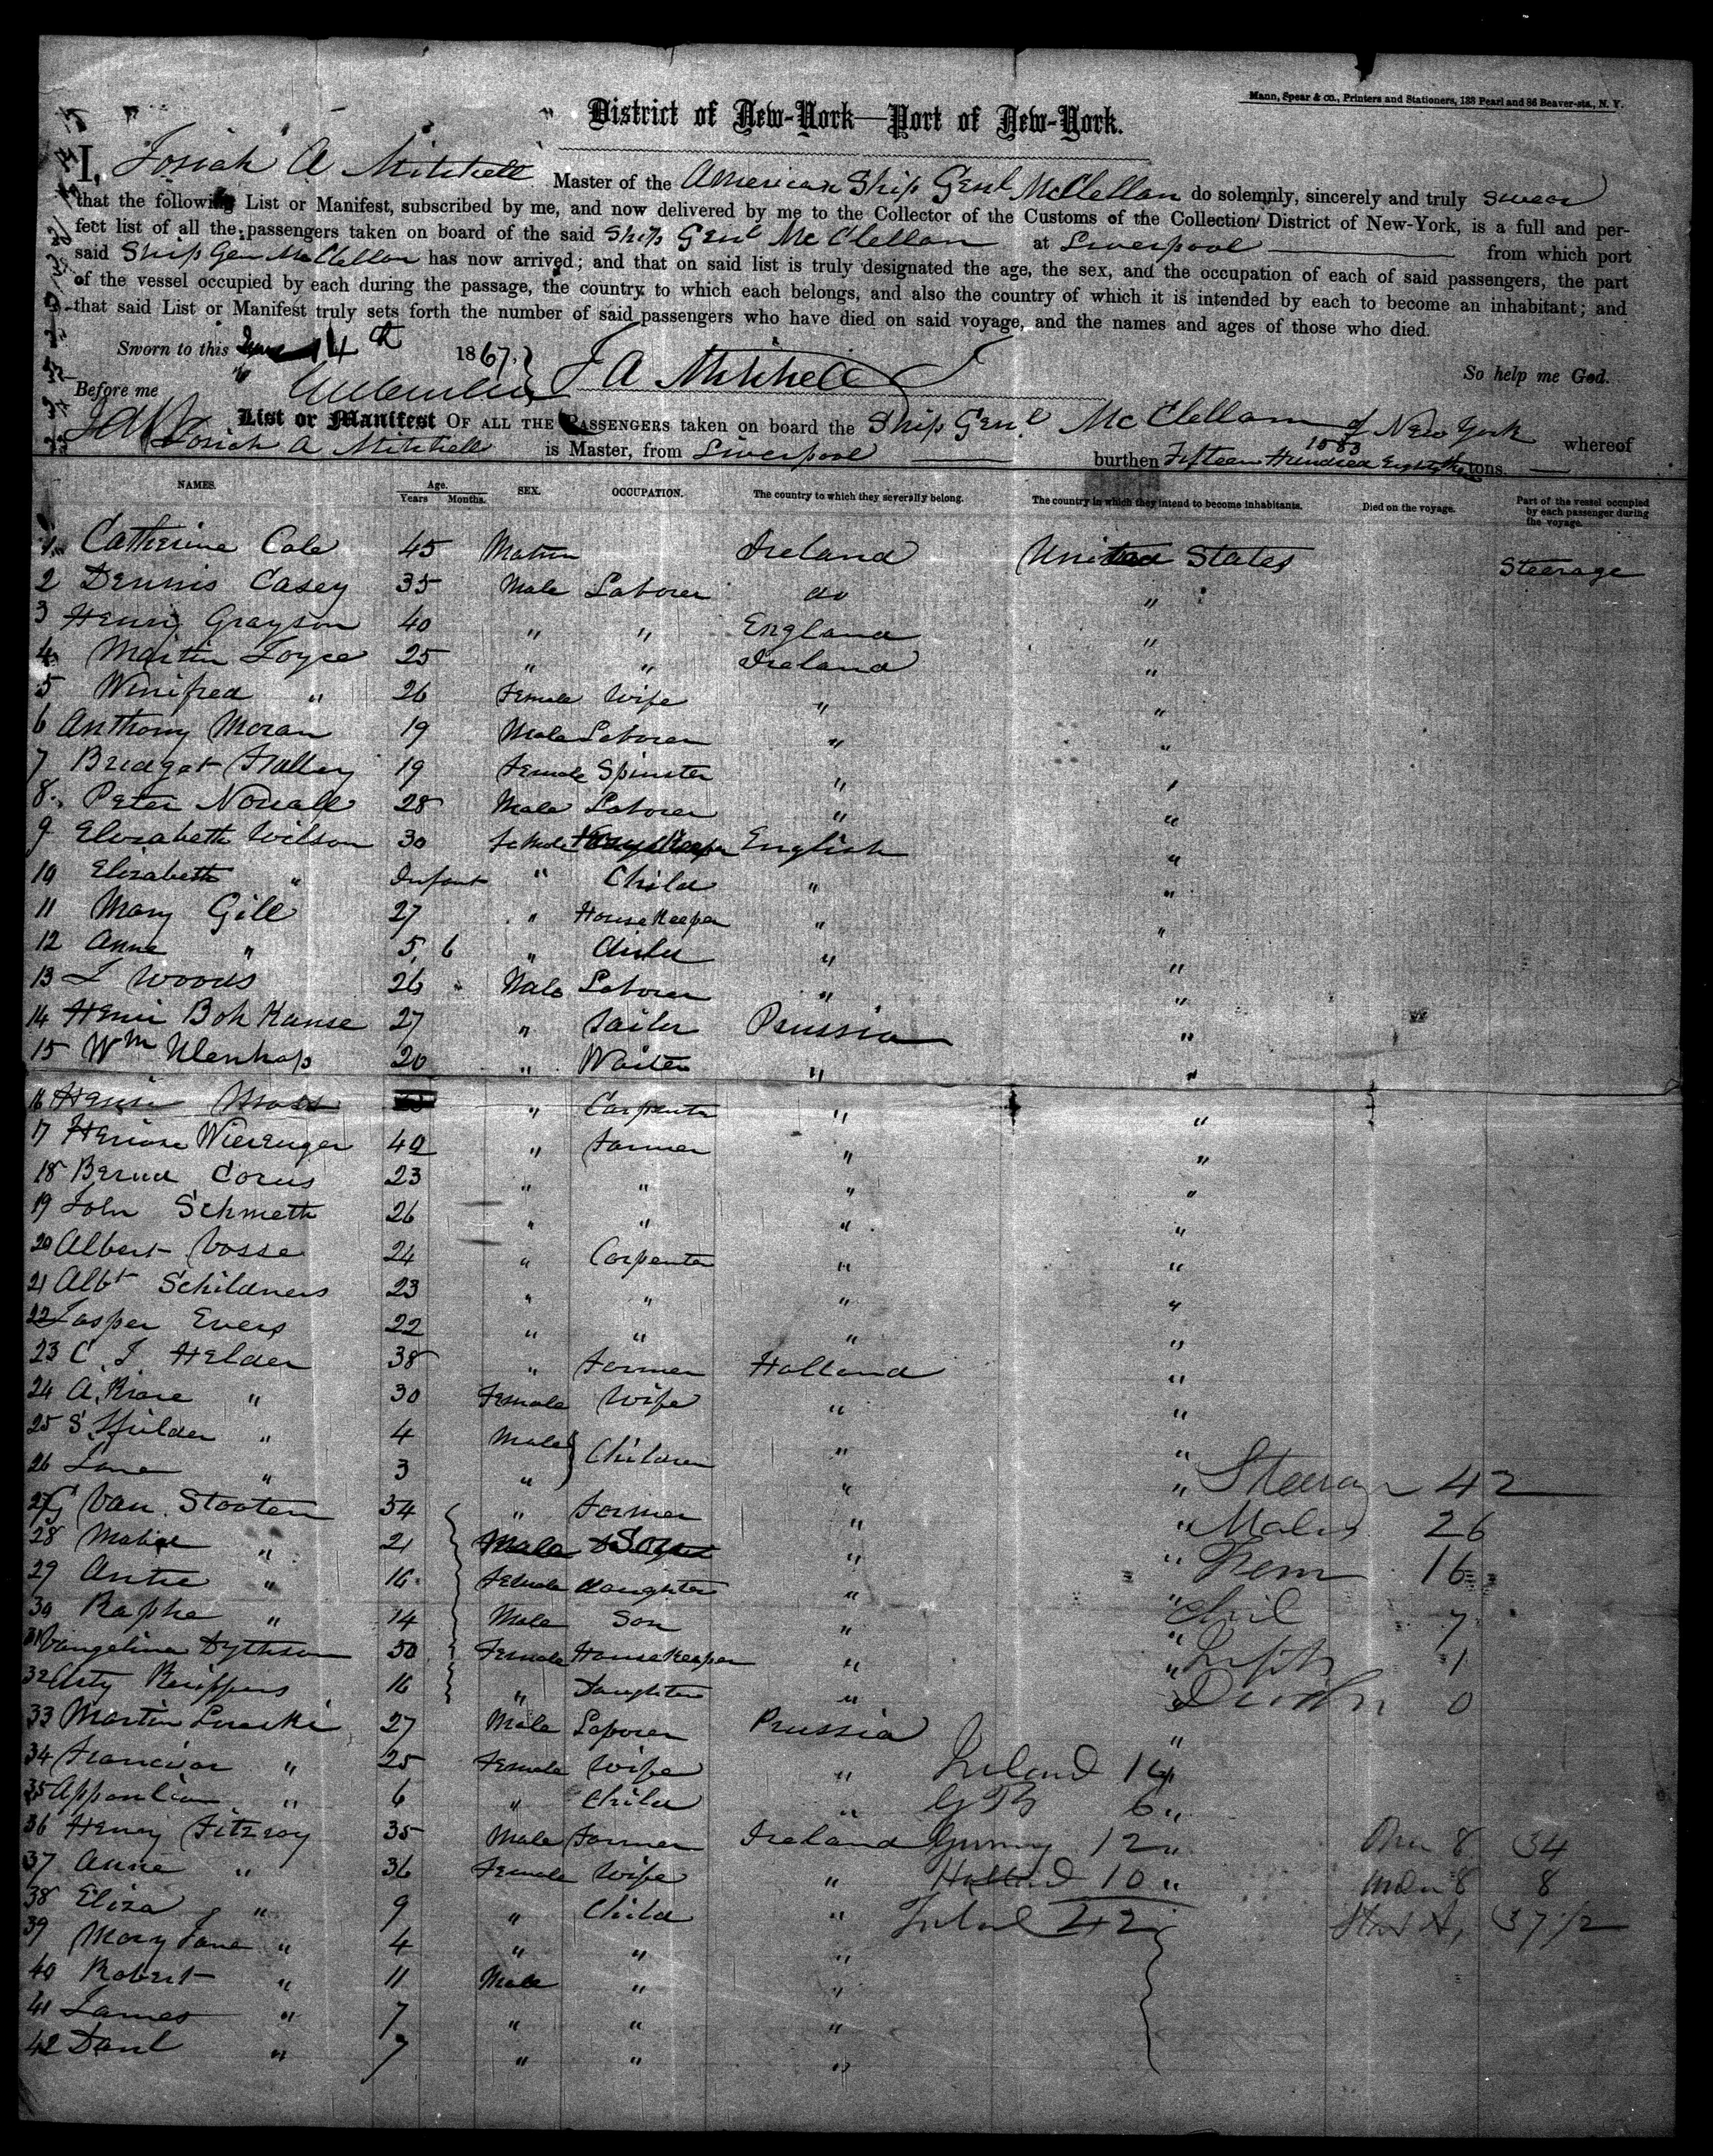 Mann, Spear & Co., Printers and Stationers, 138 Pearl and 86 Beaver-sts., N. Y.
District of New-York—Port of New-York.
I, Josiah A Mitchell Master of the American Ship Genl McClellan do solemnly, sincerely and truly swear
that the following List or Manifest, subscribed by me, and now delivered by me to the Collector of the Customs of the Collection District of New-York, is a full and per-
fect list of all the passengers taken on board of the said Ship Genl McClellan at Liverpool from which port
said Ship Gen McClellan has now arrived; and that on said list is truly designated the age, the sex, and the occupation of each of said passengers, the part
of the vessel occupied by each during the passage, the country to which each belongs, and also the country of which it is intended by each to become an inhabitant; and
that said List or Manifest truly sets forth the number of said passengers who have died on said voyage, and the names and ages of those who died.
Sworn to this 14th 1867, J A Mitchell So help me God.
Before me
List or Manifest OF ALL THE PASSENGERS taken on board the Ship Genl McClellan of New York whereof
Josiah A Mitchell is Master, from Liverpool burthen Fifteen Hundred Eighty three 1583 tons.
NAMES. Age. Years Months. SEX. OCCUPATION. The country to which they severally belong. The country in which they intend to become inhabitants. Died on the voyage. Part of the vessel occupied by each passenger during the voyage.
1 Catherine Cole 45 Matron Ireland United States Steerage
2 Dennis Casey 35 Male Laborer do "
3 Henry Grayson 40 " " England "
4 Martin Joyce 25 " " Ireland "
5 Winifred " 26 Female Wife " "
6 Anthony Moran 19 Male Laborer " "
7 Bridget 19 Female Spinster " "
8 Peter 28 Male Laborer " "
9 Elizabeth Wilson 30 Female House Keeper English "
10 Elizabeth " Infant " Child " "
11 Mary Gill 27 " House Keeper " "
12 Anne " 5 6 " Child " "
13 J Woods 26 Male Laborer " "
14 Henri Boh Kanse 27 " Tailor Prussia "
15 Wm 20 " Waiter " "
16 Henri Moss " Carpenter " "
17 Wierenger 42 " Farmer " "
18 Bernd 23 " " " "
19 John Schmeth 26 " " " "
20 Albert Vosse 24 " Carpenter " "
21 Albt Schildners 23 " " " "
22 Jasper Evers 22 " " " "
23 C. J. Helder 38 " Farmer Holland "
24 A. " 30 Female Wife " "
25 S. " 4 Male } Children " "
26 " 3 " " " Steerage 42
27 G Van Stooten 34 " Farmer " " Males 26
28 " 21 Male Son " " Fem 16
29 Antie " 16 Female daughter " " Chil 7
30 " 14 Male Son " " Infts 1
31 50 Female House Keeper " " Deaths 0
32 16 " Daughter " "
33 Martin 27 Male Laborer Prussia "
34 " 25 Female Wife " Ireland 14 "
35 " 6 " Child " G B 6 "
36 Henry Fitzroy 35 Male Farmer Ireland Germy 12 " 8 34
37 Anne " 36 Female Wife " Holland 10 " Under 8 8
38 Eliza " 9 " Child " 42 37 1/2
39 Mary Jane " 4 " " "
40 Robert " 11 Male " "
41 James " 7 " " "
42 Danl " 7 " " "